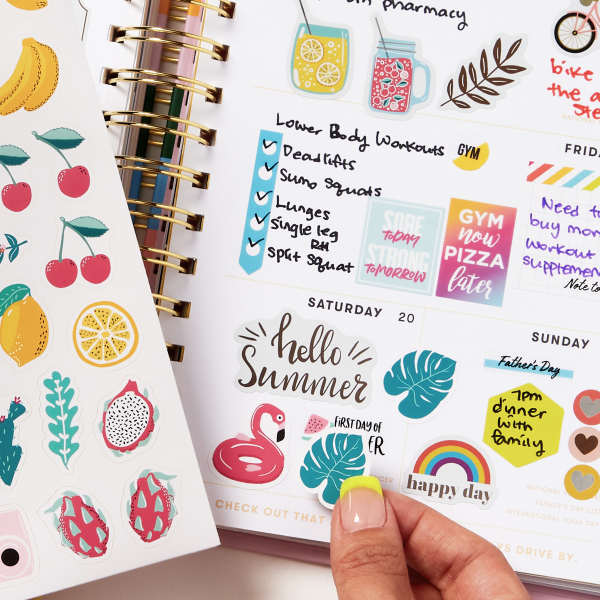 pharmacy
bike
the
Lower Body Workouts
GYM
Deadlifts
Sumo Squats
Lunges
Single leg
RH
Split Squat
SORE
TODAY
STRONG
TOMORROW
GYM
now
PIZZA
later
FRIDA
Need t
buy mor
workout
supplemen
Note to
SATURDAY 20
hello
Summer
FIRST DAY OF
ER
SUNDAY
Father's Day
7pm
dinner
with
family
happy day
CHECK OUT THAT
S DRIVE BY.